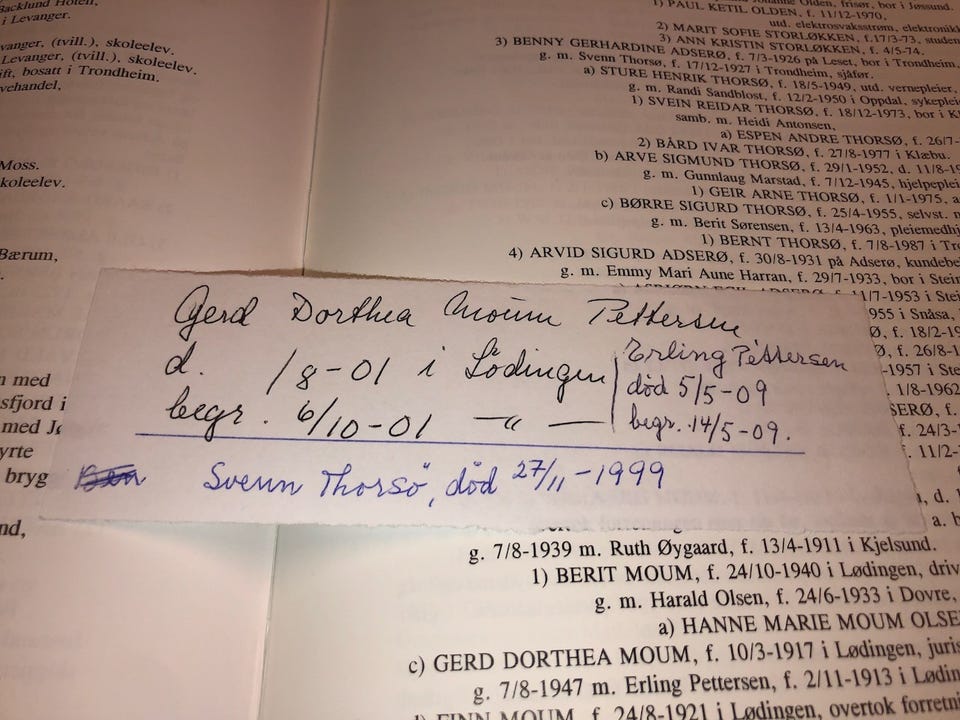 Backlund Hotell,
i Levanger.
vanger, (tvill.), skoleelev.
Levanger, (tvill.), skoleelev.
ft, bosatt i Trondheim.
vehandel,
Moss.
koleelev.
Bærum,
n med
sfjord i
med
yrte
bryg
nd,
Olden, frisør, bor i Jøssund.
1) PAUL KETIL OLDEN, f. 11/12-1970,
utd. elektrosvakstrøm, elektronikk
2) MARIT SOFIE STORLØKKEN, f.17/3-73, studen
3) ANN KRISTIN STORLØKKEN, f. 4/5-74.
3) BENNY GERHARDINE ADSERØ, f. 7/3-1926 på Leset, bor i Trondheim,
g. m. Svenn Thorsø, f. 17/12-1927 i Trondheim, sjåfør.
a) STURE HENRIK THORSØ, f. 18/5-1949, utd. vernepleier,
g. m. Randi Sandblost, f. 12/2-1950 i Oppdal, sykeplei
1) SVEIN REIDAR THORSØ, f. 18/12-1973, bor i K
samb. m. Heidi Antonsen,
a) ESPEN ANDRE THORSØ, f. 26/7-
2) BÅRD IVAR THORSØ, f. 27/8-1977 i Klæbu.
b) ARVE SIGMUND THORSØ, f. 29/1-1952, d. 11/8-19
g. m. Gunnlaug Marstad, f. 7/12-1945, hjelpeplei
1) GEIR ARNE THORSØ, f. 1/1-1975, a
c) BØRRE SIGURD THORSØ, f. 25/4-1955, selvst. n
g. m. Berit Sørensen, f. 13/4-1963, pleiemedhj
1) BERNT THORSØ, f. 7/8-1987 i Tr
4) ARVID SIGURD ADSERØ, f. 30/8-1931 på Adserø, kundebe
g. m. Emmy Mari Aune Harran, f. 29/7-1933, bor i Stein
11/7-1953 i Stei
955 i Snåsa,
Ø, f. 18/2-19
Ø, f. 26/8-1
-1957 i Ste
1/8-1962
SERØ, f.
f. 24/3-
f. 11/2-
Gerd Dorthea Moum Pettersen
d. /8-01 i Lödingen
begr. 6/10-01 —〃—
Erling Pettersen
död 5/5-09
begr. 14/5-09.
Svenn Thorsö, död 27/11-1999
d.
a. b
g. 7/8-1939 m. Ruth Øygaard, f. 13/4-1911 i Kjelsund.
1) BERIT MOUM, f. 24/10-1940 i Lødingen, driv
g. m. Harald Olsen, f. 24/6-1933 i Dovre,
a) HANNE MARIE MOUM OLSE
c) GERD DORTHEA MOUM, f. 10/3-1917 i Lødingen, juris
g. 7/8-1947 m. Erling Pettersen, f. 2/11-1913 i Lødin
d) FINN MOUM, f. 24/8-1921 i Lødingen, overtok forretni